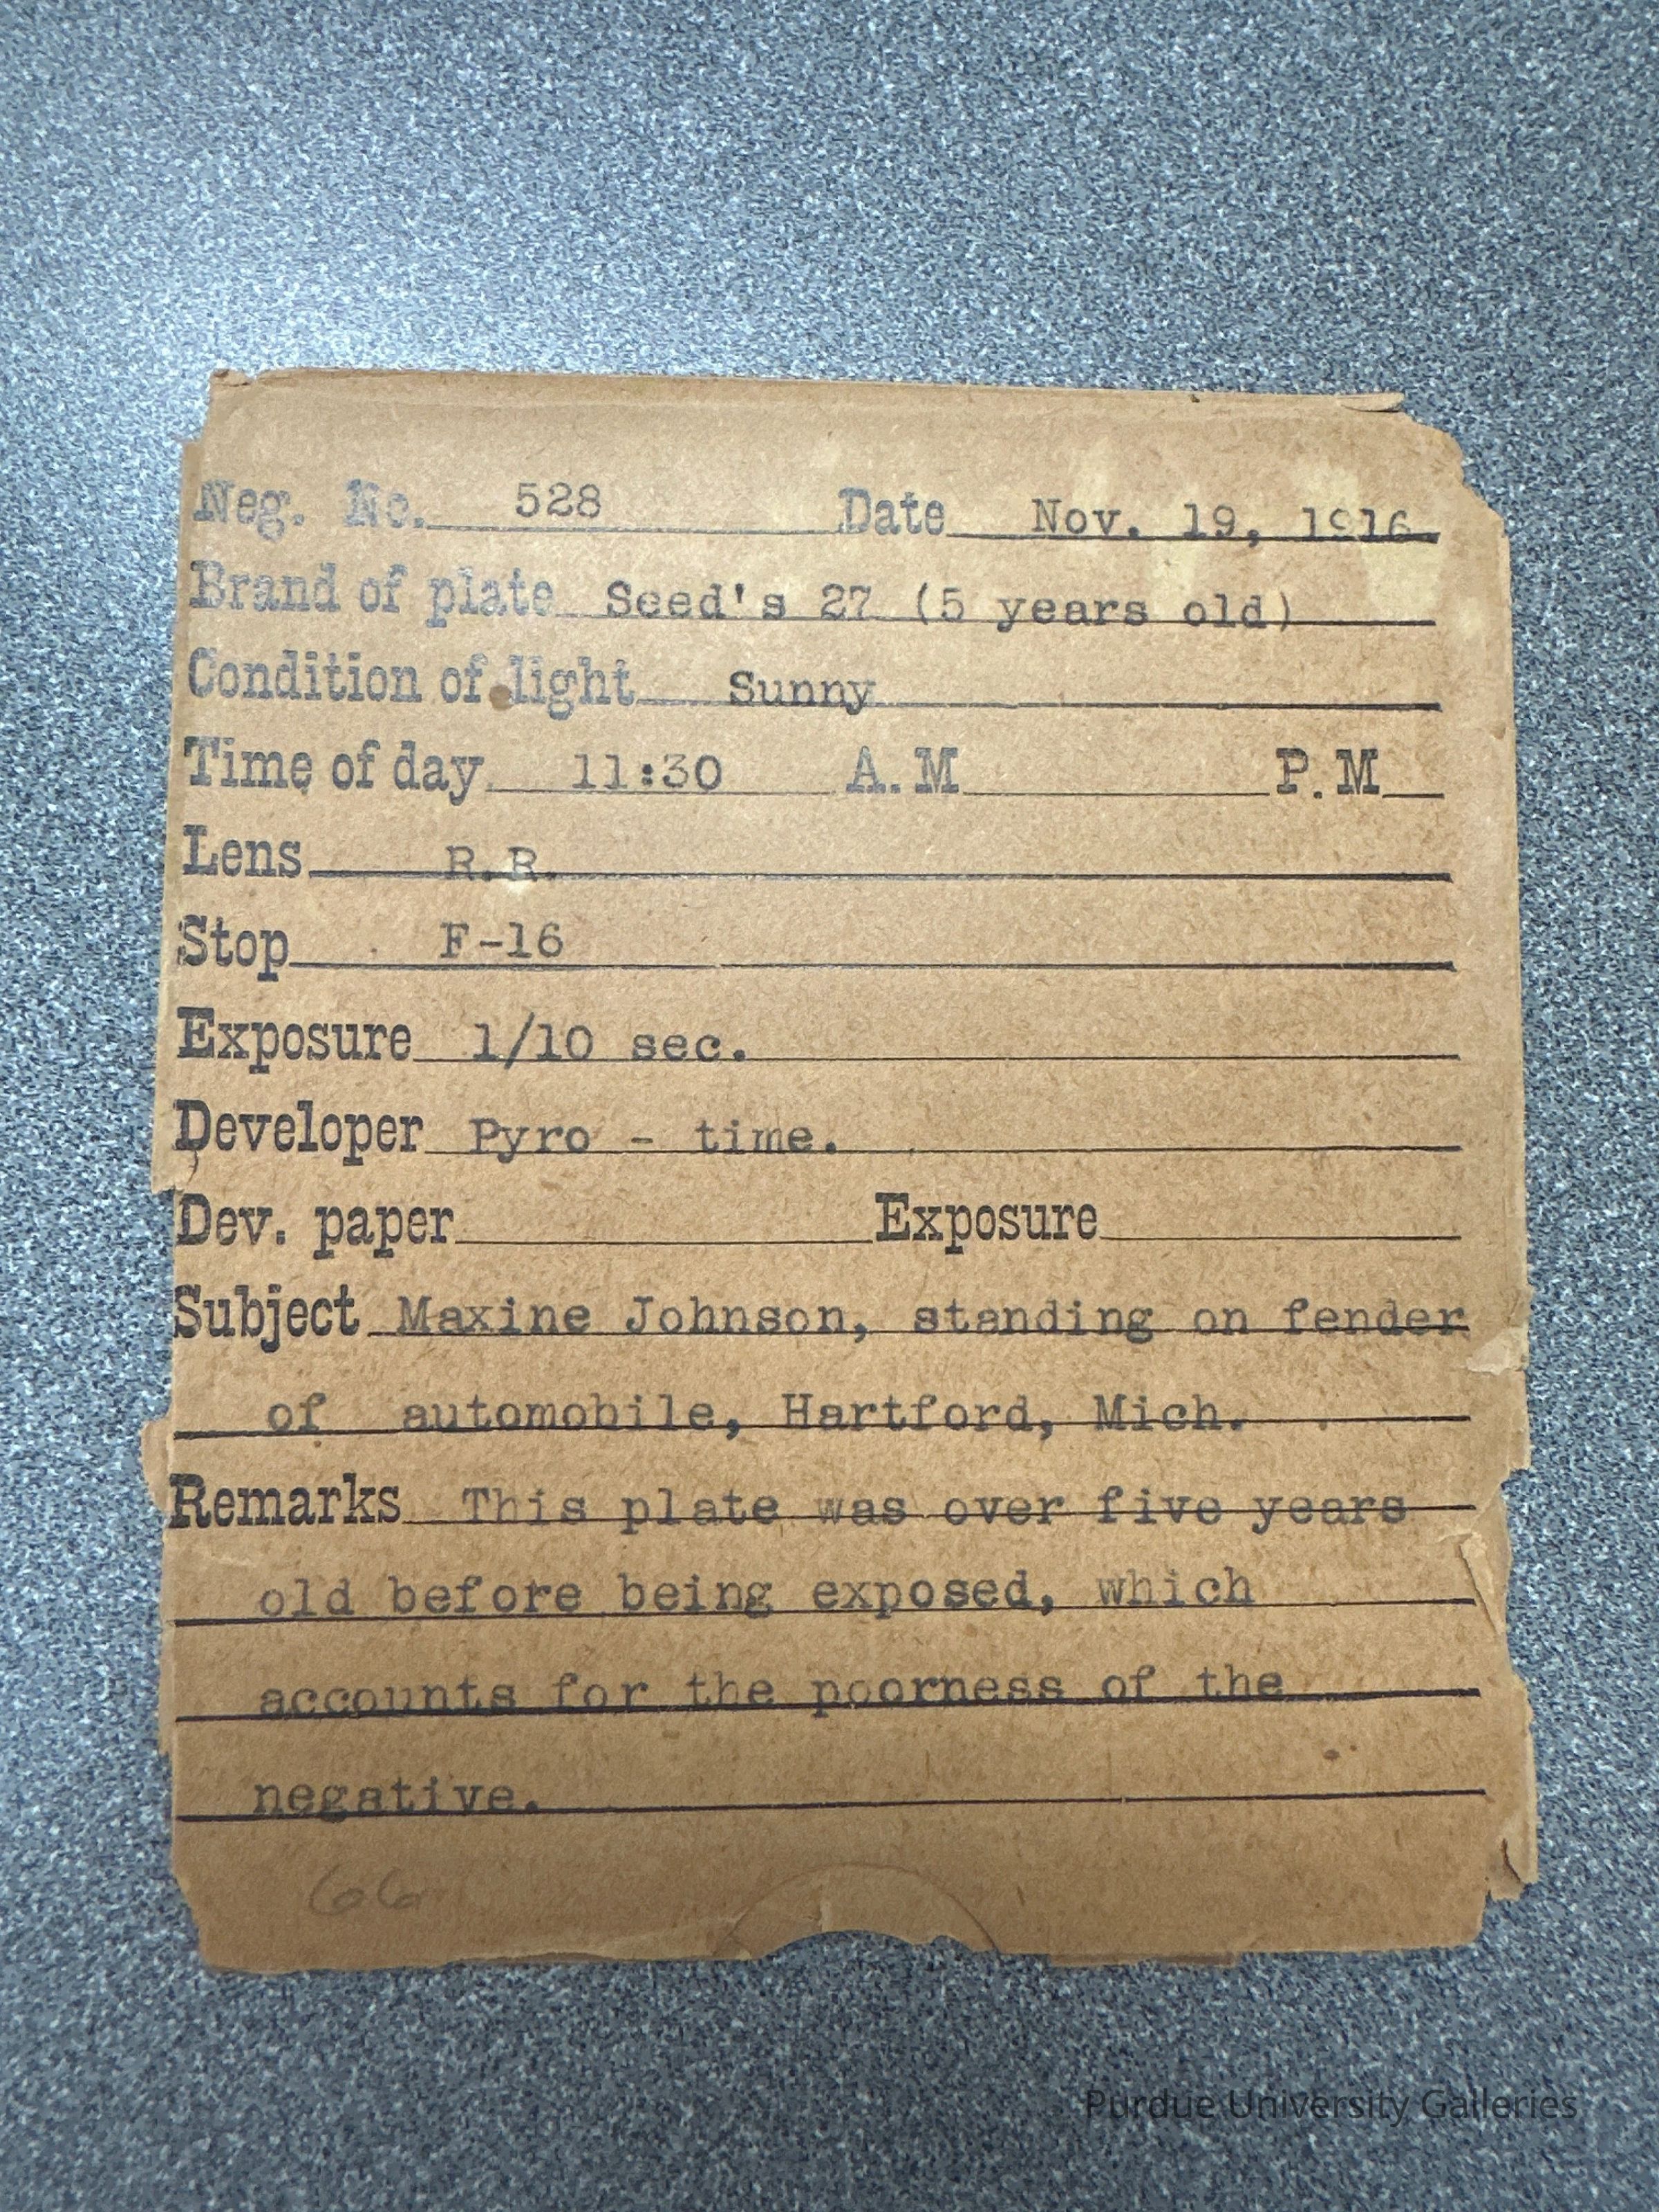 Neg. No. 528 Date Nov. 19, 1916
Brand of plate Seed's 27 (5 years old)
Condition of light Sunny
Time of day 11:30 A.M P.M
Lens R.R.
Stop F-16
Exposure 1/10 sec.
Developer Pyro - time.
Dev. paper Exposure
Subject Maxine Johnson, standing on fender
of automobile, Hartford, Mich.
Remarks This plate was over five years
old before being exposed, which
accounts for the poorness of the
negative.
66
Purdue University Galleries